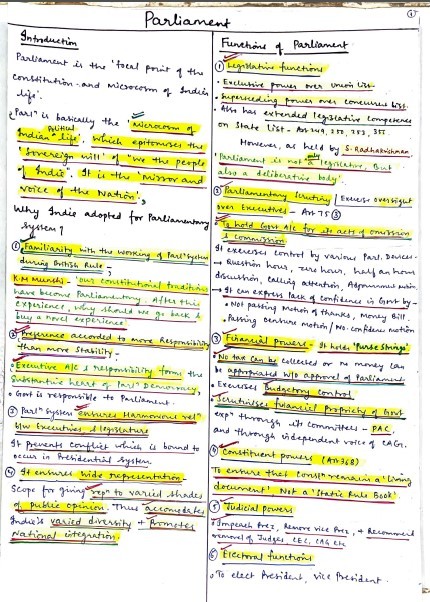 Parliament
①
Introduction
Parliament is the 'focal point of the
constitution and microcosm of Indian
life'.
"Parl" is basically the 'Microcosm of
Indian Political life, which epitomises the
'Sovereign will' of 'We the people
of India'. It is the 'mirror and
voice of the Nation',
Why India adopted for Parliamentary
system?
① Familiarity with the working of Parl system
during British Rule,
K.M Munshi - 'our constitutional traditions
have become Parliamentary. After this
experience, why should we go back &
buy a novel experience.
② Preference accorded to more Responsibility
than more Stability.
• Executive A/c & responsibility form the
substantive heart of Parl Democracy,
• Govt is responsible to Parliament.
③ Parl system ensures Harmonious rel
b/w Executives & legislature
It prevents conflict which is bound to
occur in Presidential system.
④ It ensures wide representation
Scope for giving rep to varied shades
of public opinion. Thus accomodates
India's varied diversity + Promotes
National integration.
Functions of Parliament
① Legislative functions
• Exclusive power over Union list
• Superseding power over concurrent list
• Also has extended legislative competence
on State list - Art 249, 250, 252,
However, as held by S. Radhakrishnan
'Parliament is not only a legislative, but
also a deliberative body'.
② Parliamentary Scrutiny / Exercise oversight
over Executives - Art 75(3)
To hold Govt A/c for its acts of omission
& commission
It exercises control by various Parl. Devices -
→ Question hours, zero hours, half an hour
discussion, calling attention, Adjournment motion
→ It can express lack of confidence in Govt by -
• Not passing Motion of thanks, Money Bill
• Passing censure motion / No confidence motion
③ Financial powers - It holds 'Purse Strings'
• No tax can be collected or no money can
be appropriated w/o approval of Parliament.
• Exercises Budgetary control
• Scrutinises financial propriety of Govt
exp through its committees - PAC,
and through independent voice of CAG.
④ Constituent powers (Art 368)
To ensure that Const remains a 'living
document'. Not a 'Static Rule Book'.
⑤ Judicial powers
Impeach Prez, Remove vice Prez, + Recommend
removal of Judges, CEC, CAG etc
⑥ Electoral functions
To elect President, vice President.